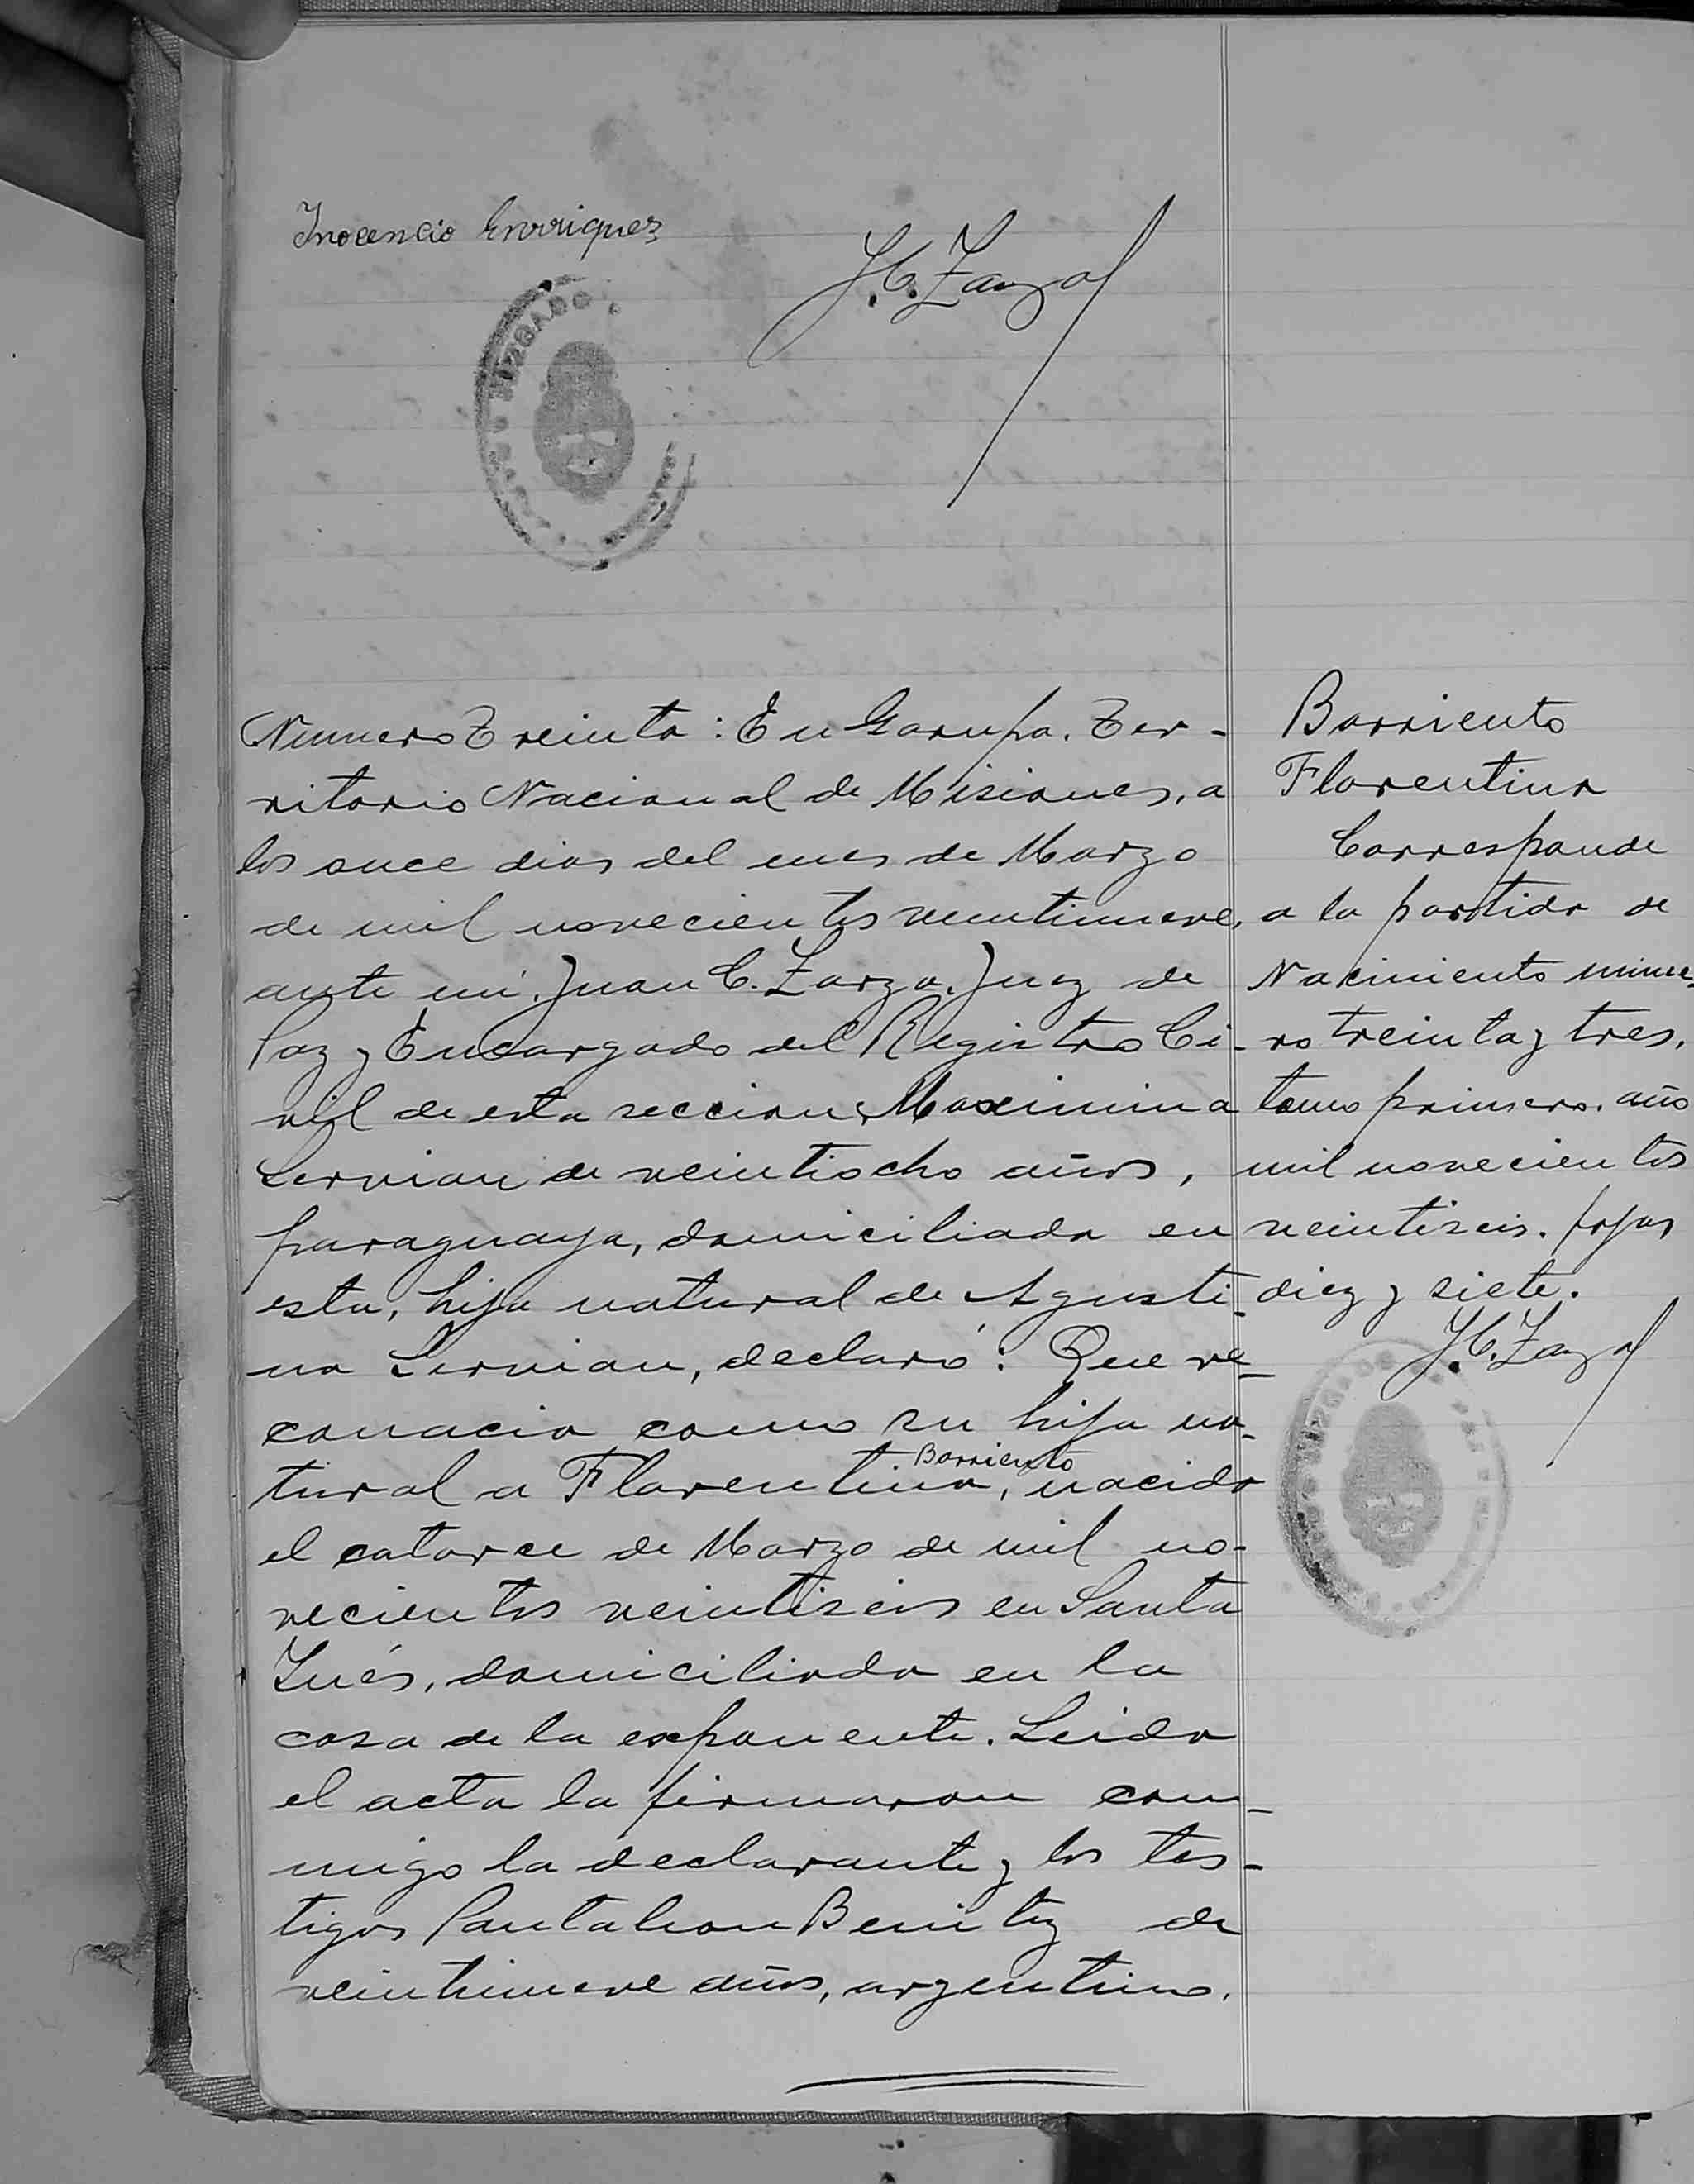 Inocencio Enrriquez
J. C. Zarza
JUZGADO
Numero Treinta: En Garupa. Ter-
ritorio Nacional de Misiones, a
los once dias del mes de Marzo
de mil novecientos veintinueve,
ante mí. Juan C. Zarza. Juez de
Paz y Encargado del Registro Ci-
vil de esta seccion, Maximina
Servian de veintiocho años,
paraguaya, domiciliada en
esta, hija natural de Agusti-
na Servian, declaró: Que re-
conocia como su hija na-
tural a Florentina, Barriento nacida
el catorce de Marzo de mil no-
vecientos veintiseis en Santa
Inés, domiciliada en la
casa de la exponente. Leida
el acta la firmaron con-
migo la declarante y los tes-
tigos Pantaleon Benitez de
veintinueve años, argentino.
Barriento
Florentina
Corresponde
a la partida de
Nacimiento nume-
ro treinta y tres,
tomo primero. año
mil novecientos
veintiseis. fojas
diez y siete.
J. C. Zarza
JUZGADO DE